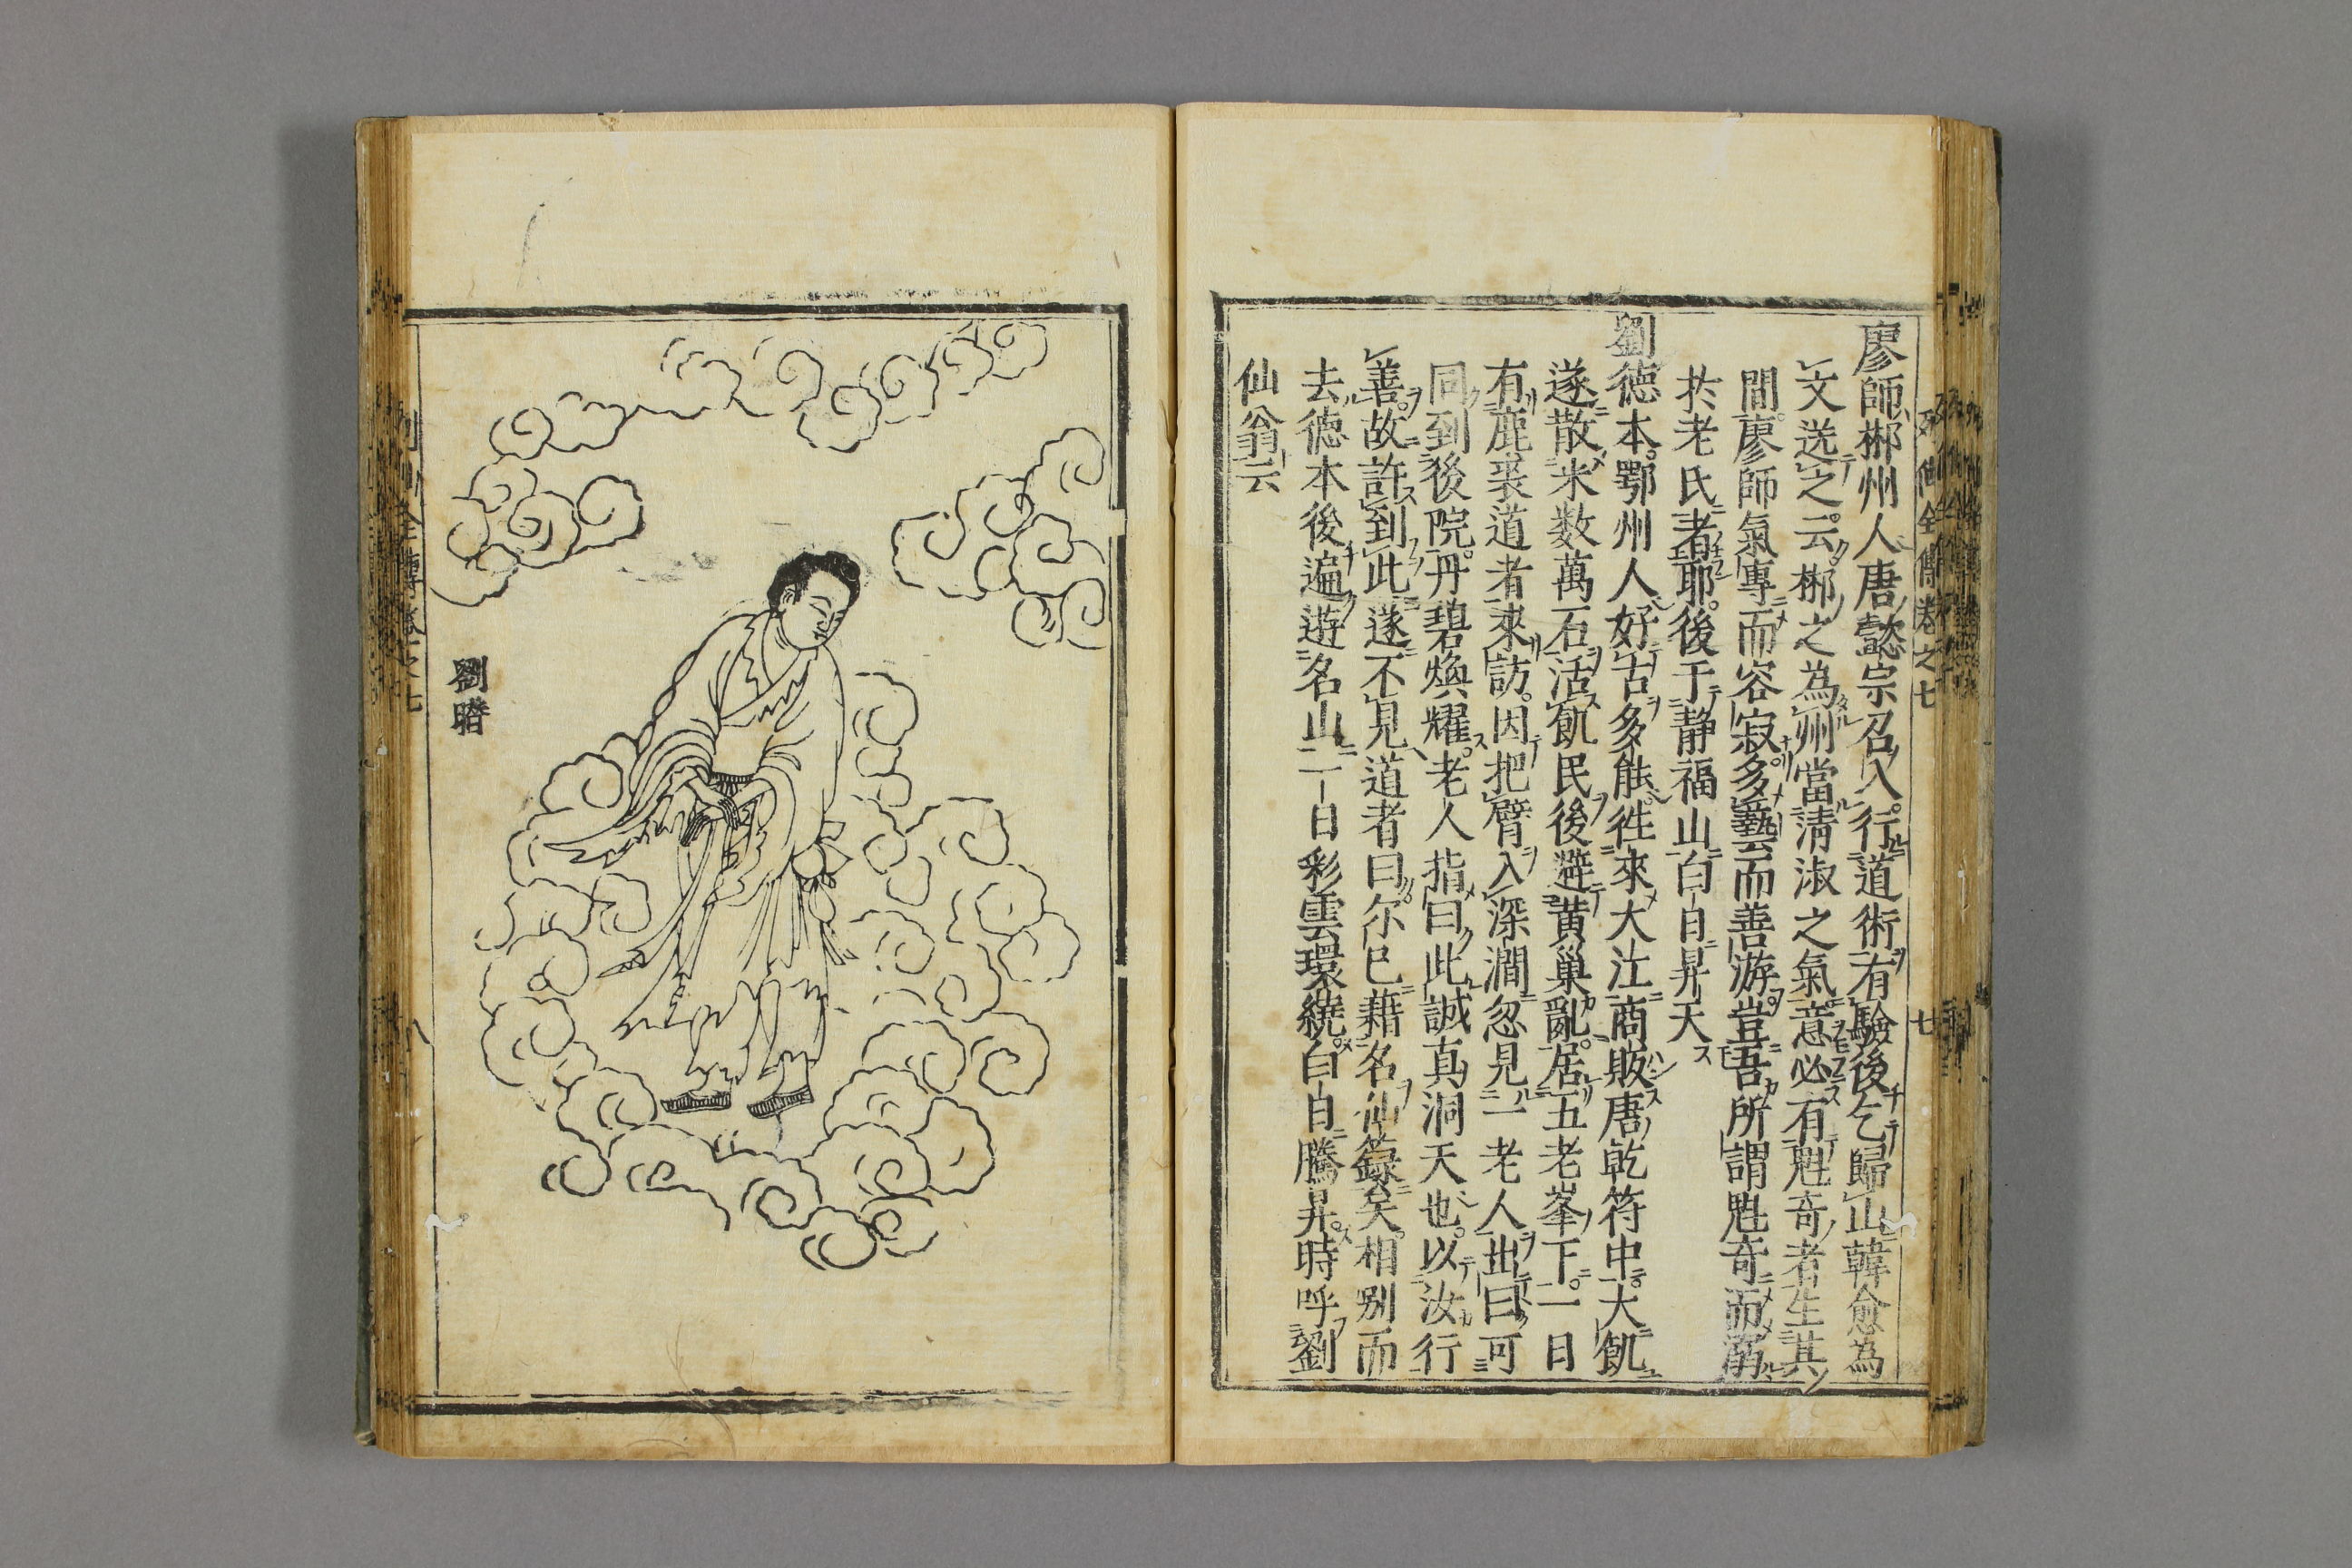 列仙全傳卷之七 七
廖師郴州人唐懿宗召入行道術有驗後乞歸山韓愈為
文送之云郴之為州當清淑之氣意必有魁奇者生其
間廖師氣專而容寂多藝而善游豈吾所謂魁奇而溺
於老氏者耶後于静福山白日昇天
劉徳本鄂州人好古多能徃來大江商販唐乾符中大飢
遂散米数萬石活飢民後避黄巢亂居五老峯下一日
有鹿裘道者來訪因把臂入深澗忽見一老人出曰可
同到後院丹碧煥耀老人指曰此誠真洞天也以汝行
善故許到此遂不見道者曰尓已藉名仙籙矣相别而
去徳本後遍遊名山一日彩雲環繞白日騰昇時呼劉
仙翁云
劉㬱
列仙全傳卷之七 八